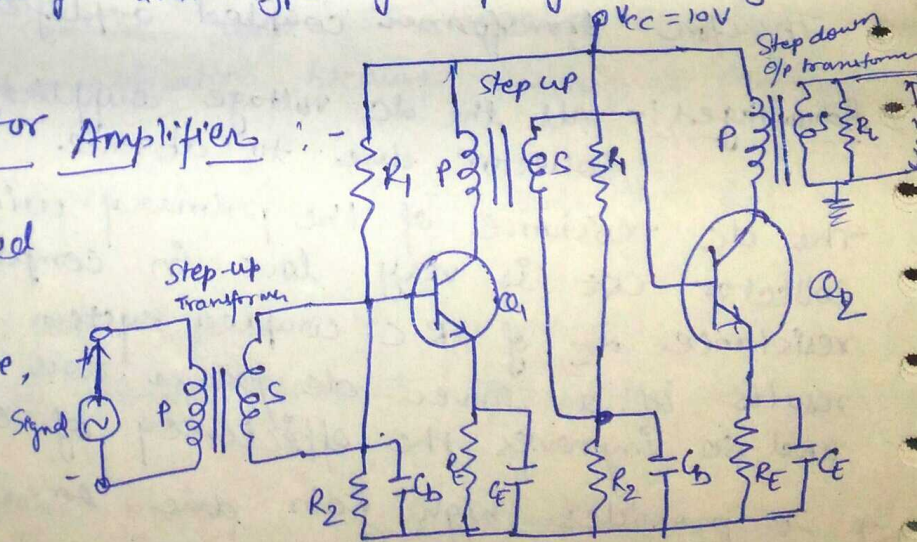 VCC = 10V
Step down
O/P transforme
Step up
or Amplifier :-
R1
P
S
R1
P
S
RL
ed
Step-up
Transformer
Q1
Q2
e,
+
Signal
P
S
-
R2
CD
RE
CE
R2
CD
RE
CE